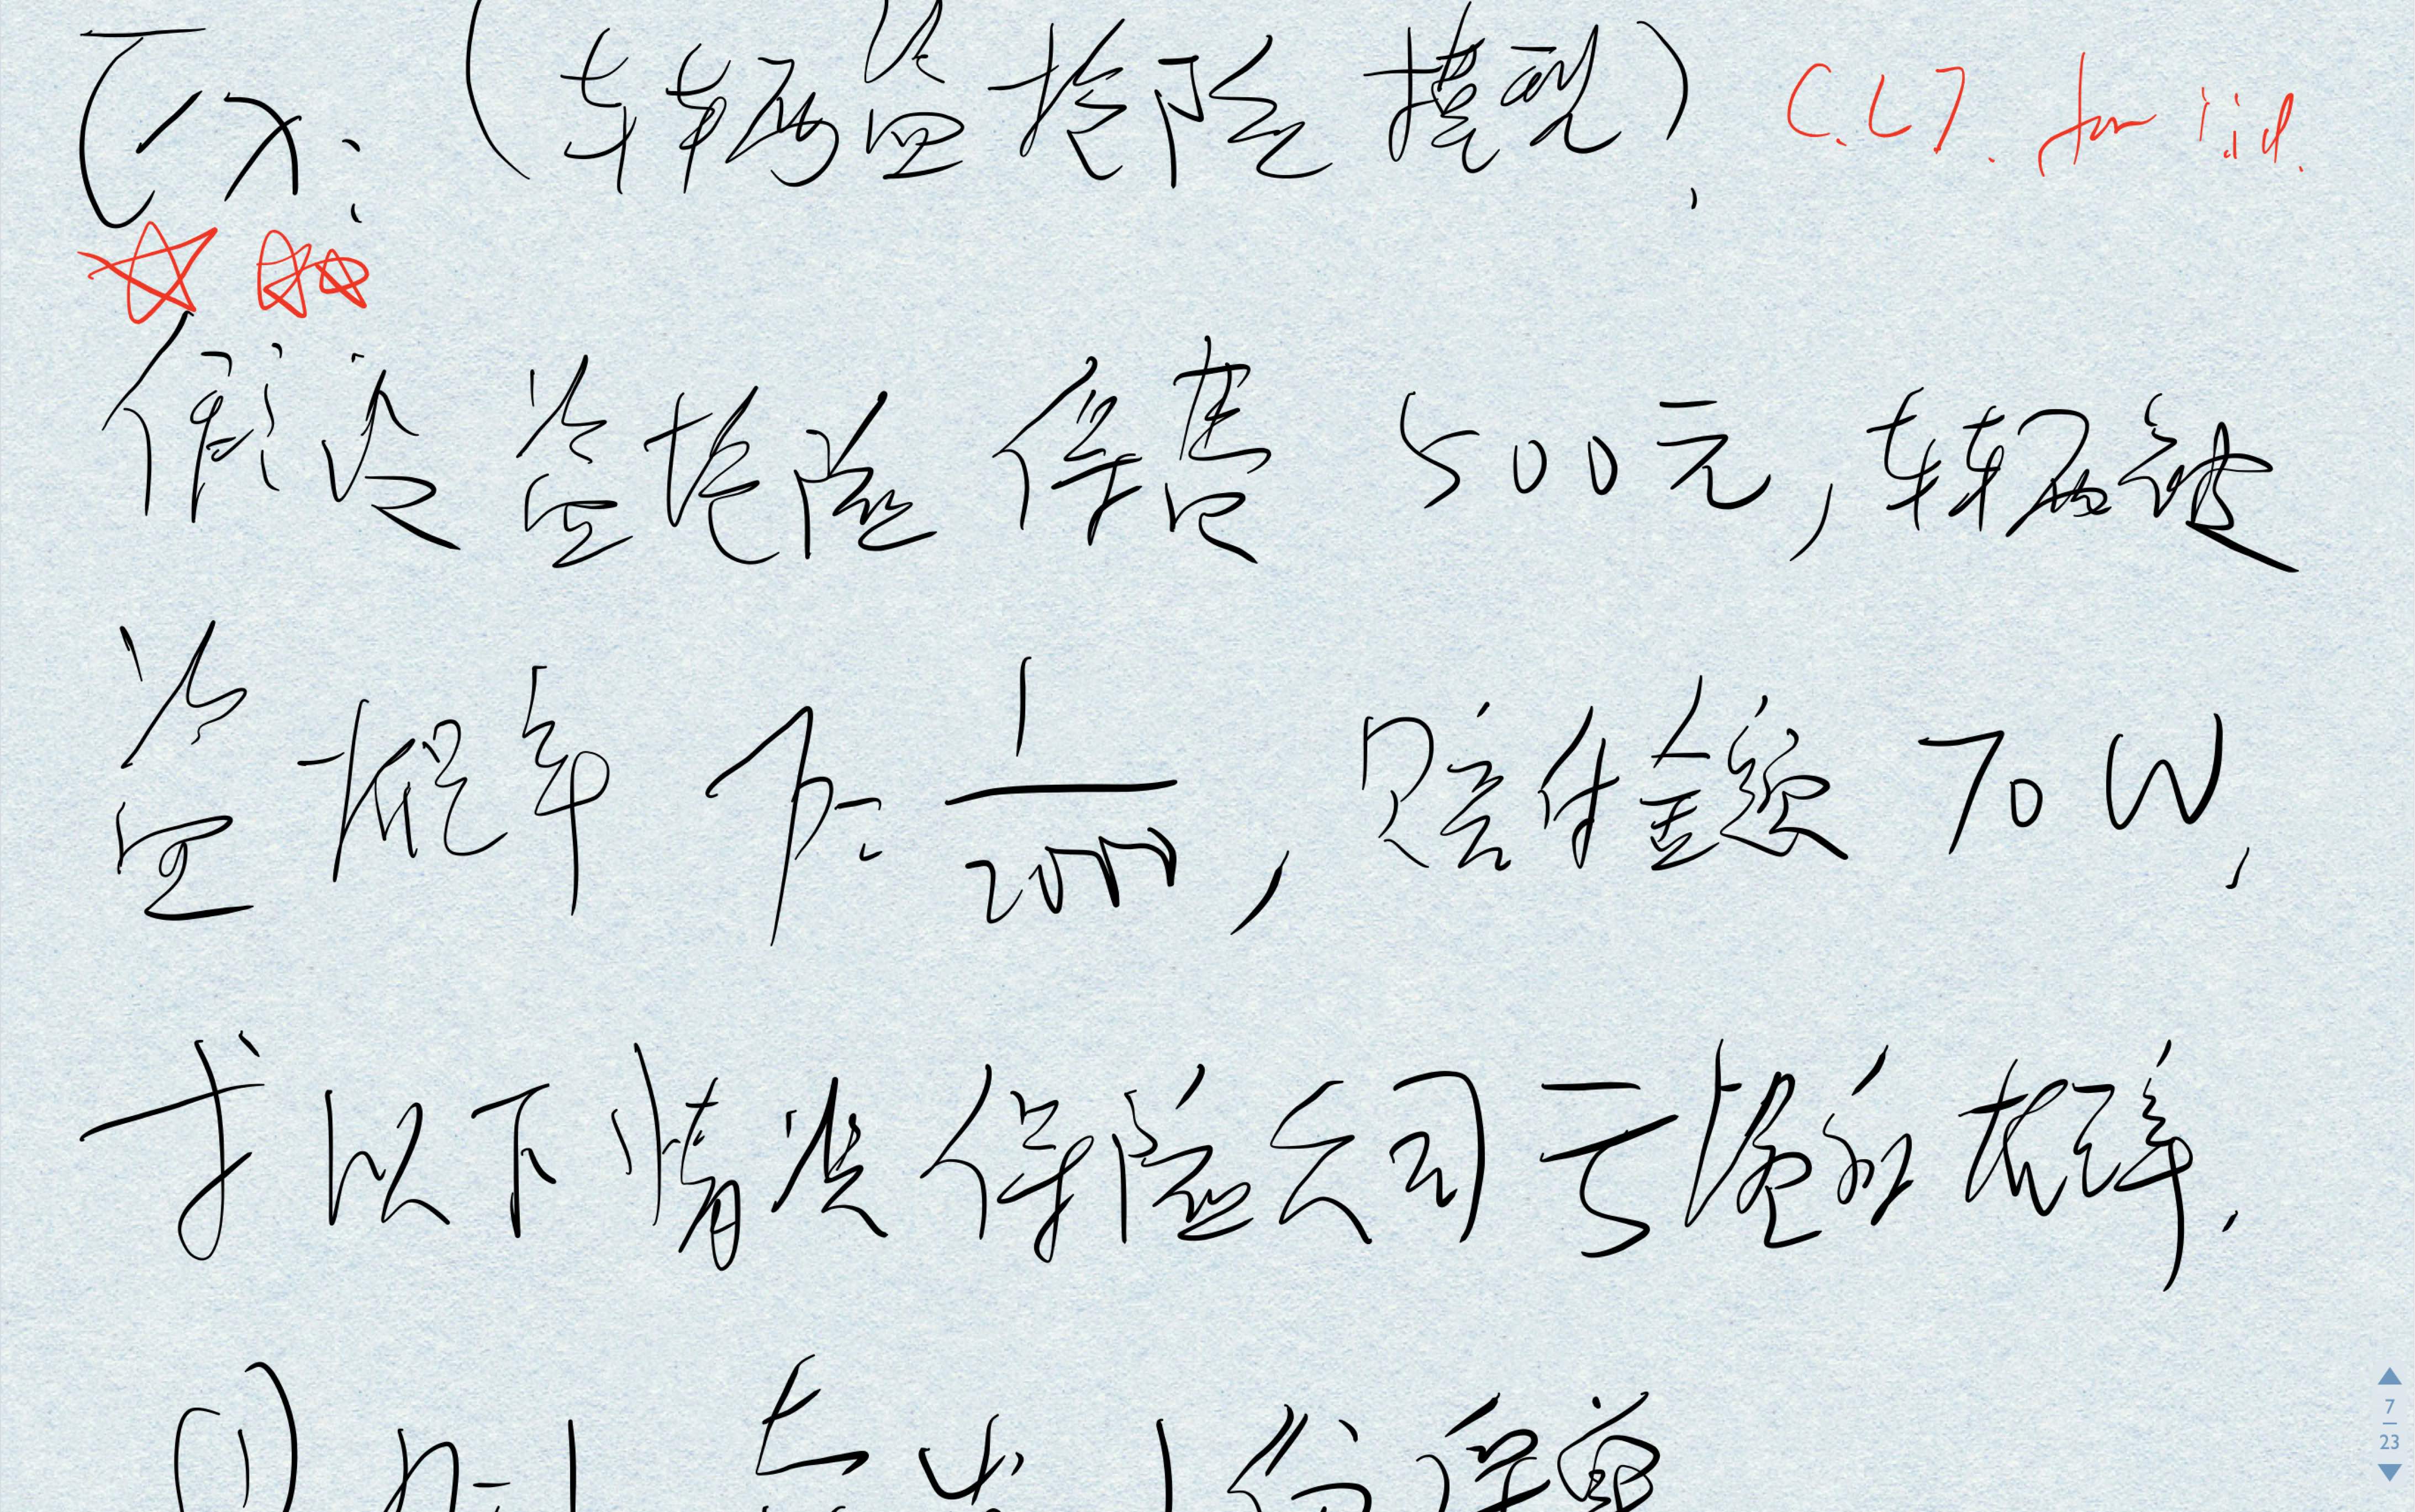 Ex: (车辆盗抢险模型), C.L.T. for i.i.d.
假设盗抢险保费 500元, 车辆被
盗概率 p = 1/2000, 赔付金额 70W,
求以下情况保险公司亏损的概率.
① n=1 卖出 1份保单
7
23